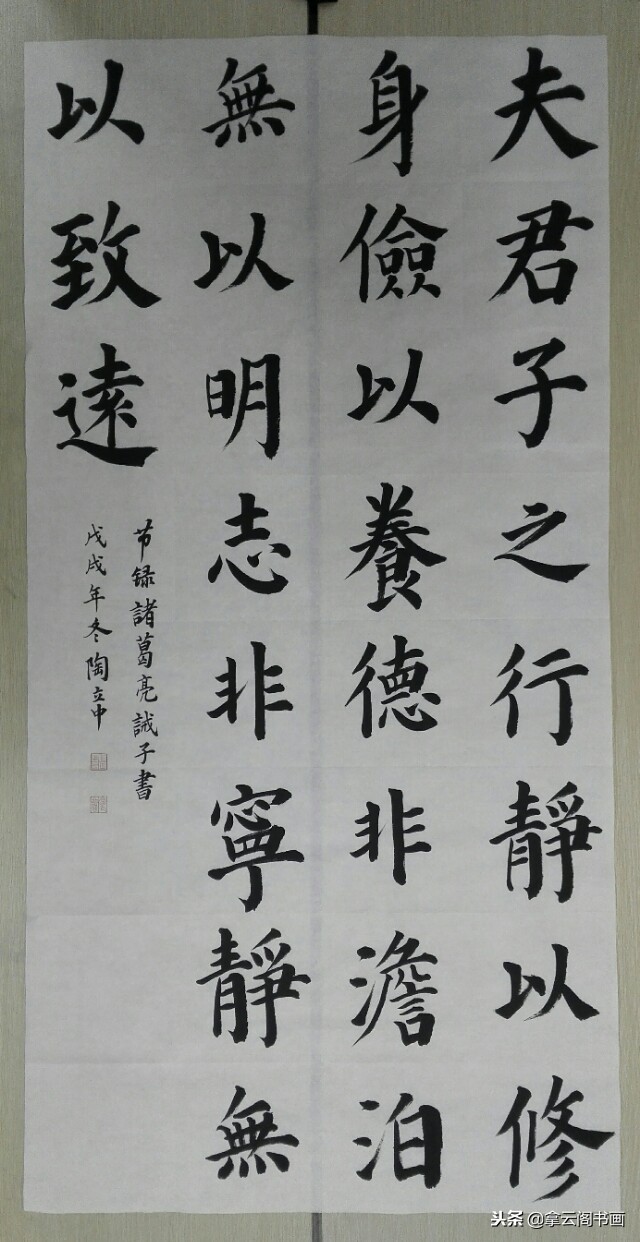 夫君子之行靜以修
身儉以養德非澹泊
無以明志非寧靜無
以致遠
节録諸葛亮誡子書
戊戌年冬陶立中
头条@拿云阁书画